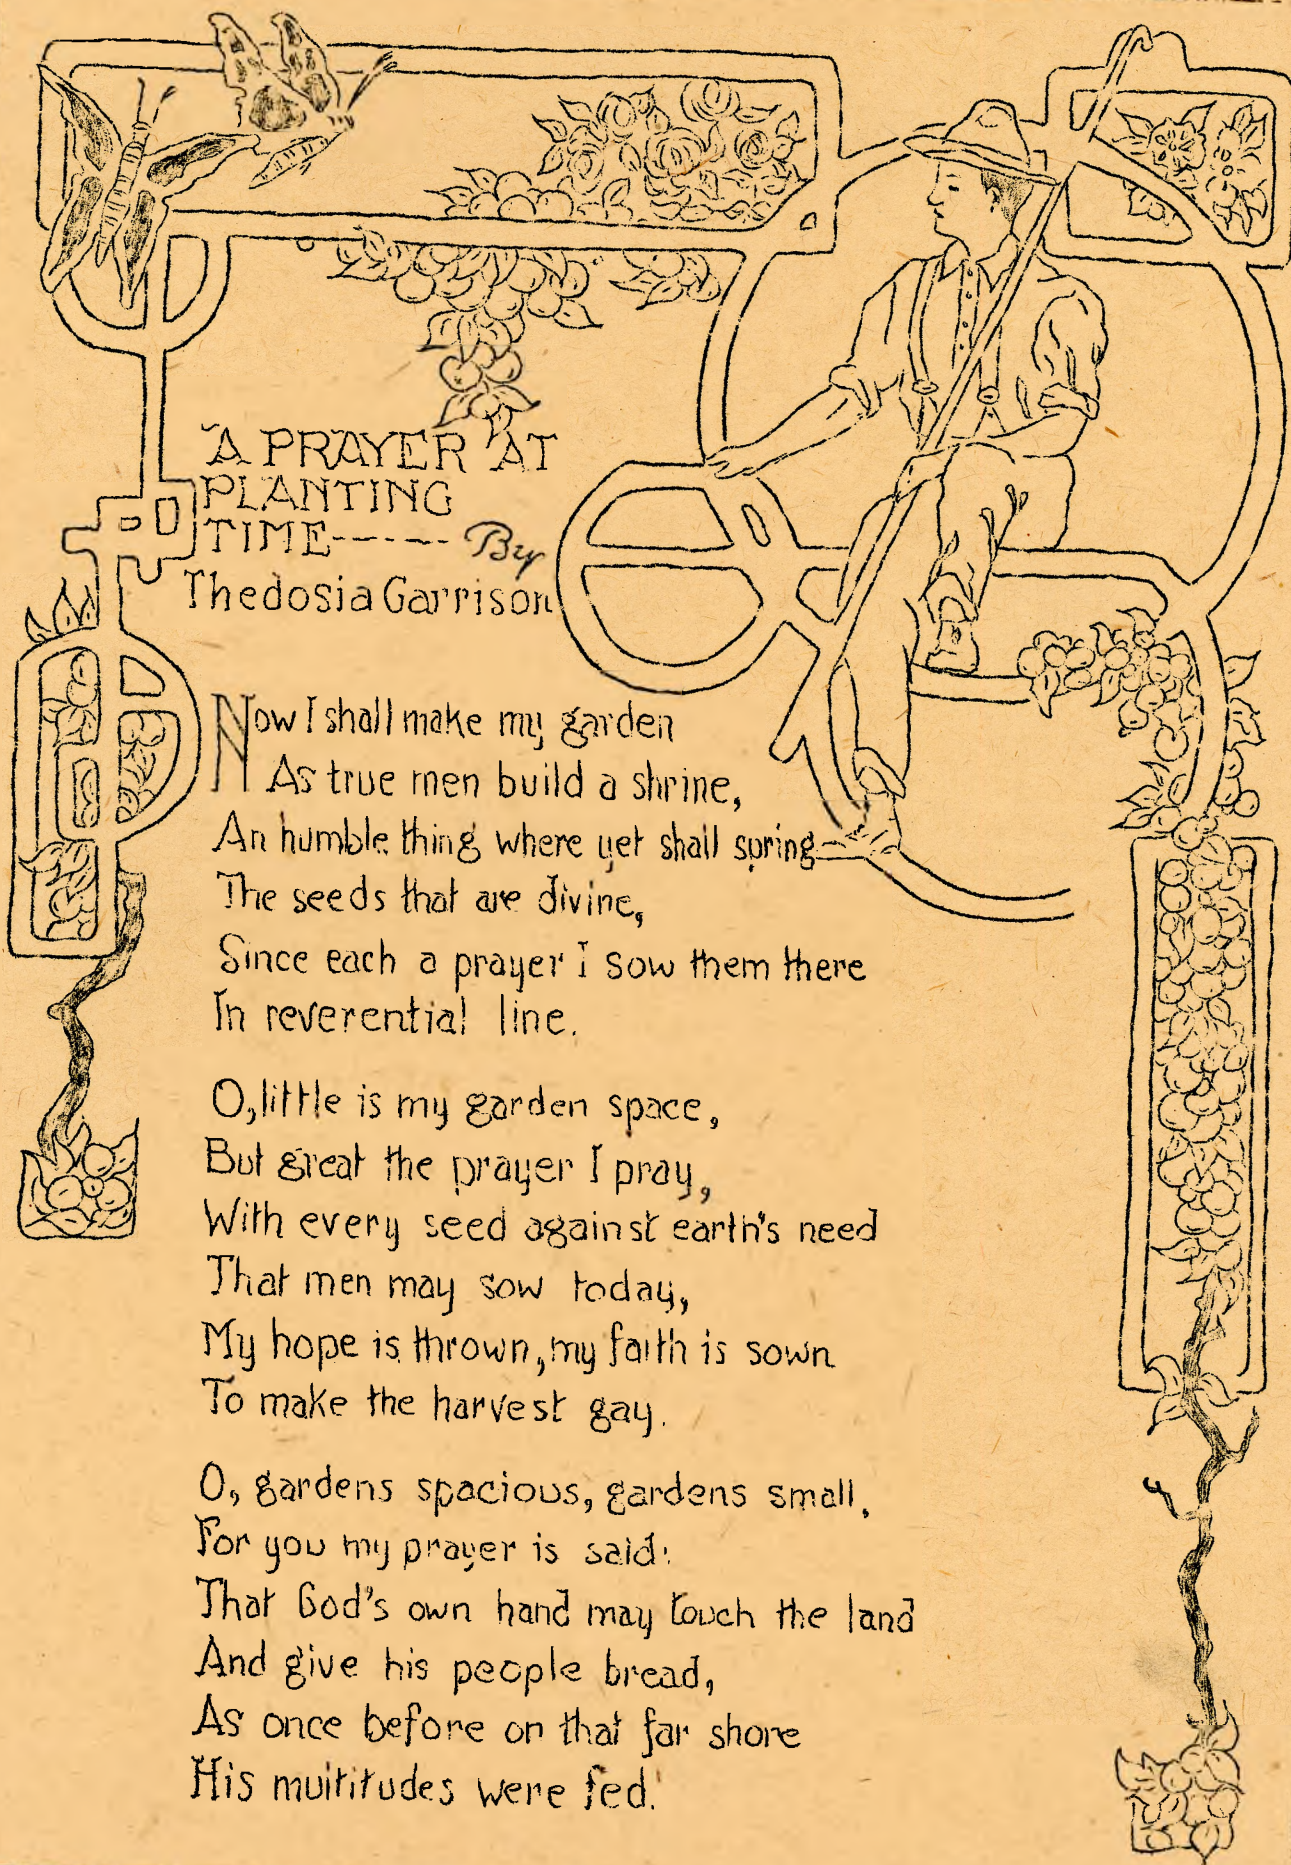 A PRAYER AT
PLANTING
TIME------ By
Thedosia Garrison
Now I shall make my garden
As true men build a shrine,
An humble thing where yet shall spring
The seeds that are divine,
Since each a prayer i sow them there
In reverential line.
O, little is my garden space,
But great the prayer I pray,
With every seed against earth's need
That men may sow today,
My hope is thrown, my faith is sown
To make the harvest gay.
O, gardens spacious, gardens small,
For you my prayer is said:
That God's own hand may touch the land
And give his people bread,
As once before on that far shore
His multitudes were fed.